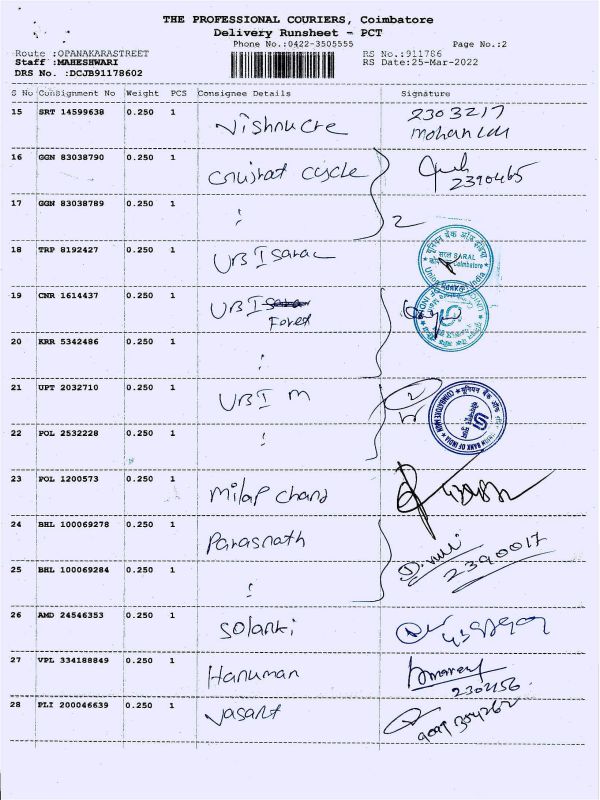 THE PROFESSIONAL COURIERS, Coimbatore
Delivery Runsheet - PCT
Phone No.:0422-3505555 Page No.:2
Route :OPANAKARASTREET RS No.:911786
Staff :MAHESHWARI RS Date:25-Mar-2022
DRS No. :DCJB91178602
S No Consignment No Weight PCS Consignee Details Signature
15 SRT 14599638 0.250 1 Vishnu Cre 2303217
mohan Lal
16 GGN 83038790 0.250 1 Gujrat Cycle 2390465
17 GGN 83038789 0.250 1 2
18 TRP 8192427 0.250 1 UBI Saral
SARAL
Coimbatore
19 CNR 1614437 0.250 1 UBI
Forex
20 KRR 5342486 0.250 1
21 UPT 2032710 0.250 1 UBI M 2
UNION BANK OF INDIA
22 POL 2532228 0.250 1
23 POL 1200573 0.250 1 Milap Chand
24 BHL 100069278 0.250 1 Parasnath
2390017
25 BHL 100069284 0.250 1
26 AMD 24546353 0.250 1 Solanki
27 VPL 334188849 0.250 1 Hanuman
2302156
28 PLI 200046639 0.250 1 Vasant